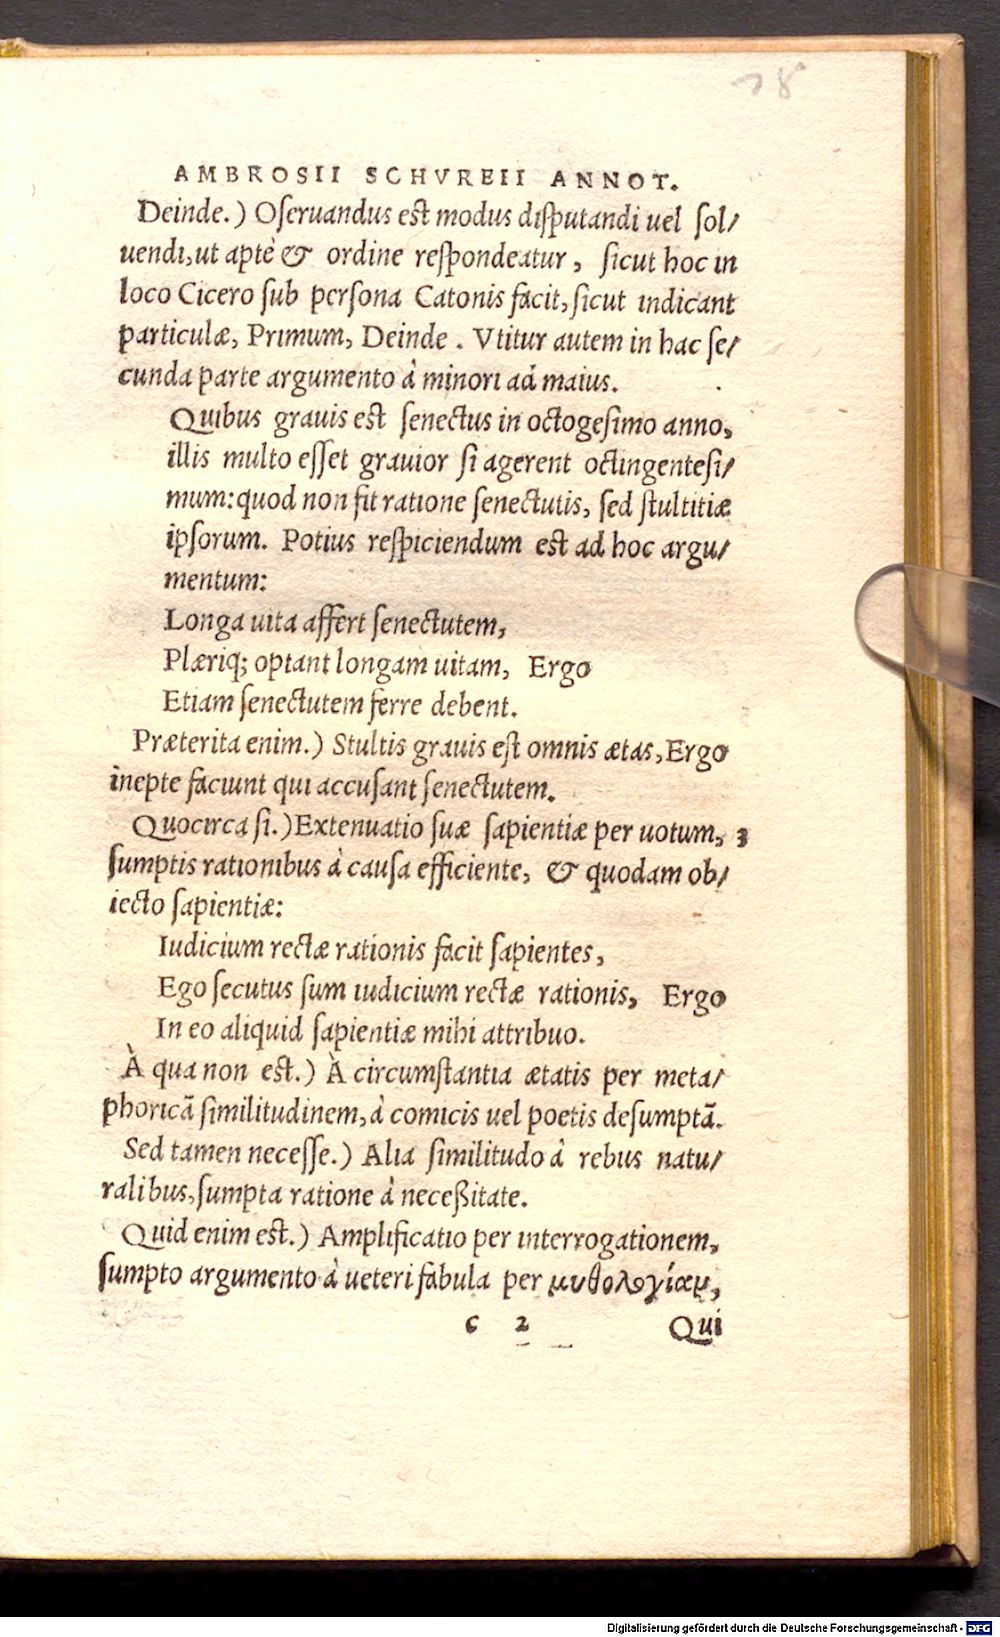 78
AMBROSII SCHVREII ANNOT.
Deinde.) Oſeruandus est modus diſputandi uel ſol/
uendi, ut aptè & ordine reſpondeatur, ſicut hoc in
loco Cicero ſub perſona Catonis facit, ſicut indicant
particulæ, Primum, Deinde. Vtitur autem in hac ſe/
cunda parte argumento à minori ad maius.
Quibus grauis est ſenectus in octogeſimo anno,
illis multo eſſet grauior ſi agerent octingenteſi/
mum: quod non fit ratione ſenectutis, ſed ſtultitiæ
ipſorum. Potius reſpiciendum est ad hoc argu/
mentum:
Longa uita affert ſenectutem,
Plæriq; optant longam uitam, Ergo
Etiam ſenectutem ferre debent.
Præterita enim.) Stultis grauis eſt omnis ætas, Ergo
inepte faciunt qui accuſant ſenectutem.
Quocirca ſi.) Extenuatio ſuæ ſapientiæ per uotum, 3
ſumptis rationibus à cauſa efficiente, & quodam ob/
iecto ſapientiæ:
Iudicium rectæ rationis facit ſapientes,
Ego ſecutus ſum iudicium rectæ rationis, Ergo
In eo aliquid ſapientiæ mihi attribuo.
À qua non est.) À circumſtantia ætatis per meta/
phoricã ſimilitudinem, à comicis uel poetis deſumptã.
Sed tamen neceſſe.) Alia ſimilitudo à rebus natu/
ralibus, ſumpta ratione à neceßitate.
Quid enim est.) Amplificatio per interrogationem,
ſumpto argumento à ueteri fabula per μυθολογίαμ,
c 2 Qui
Digitalisierung gefördert durch die Deutsche Forschungsgemeinschaft - DFG